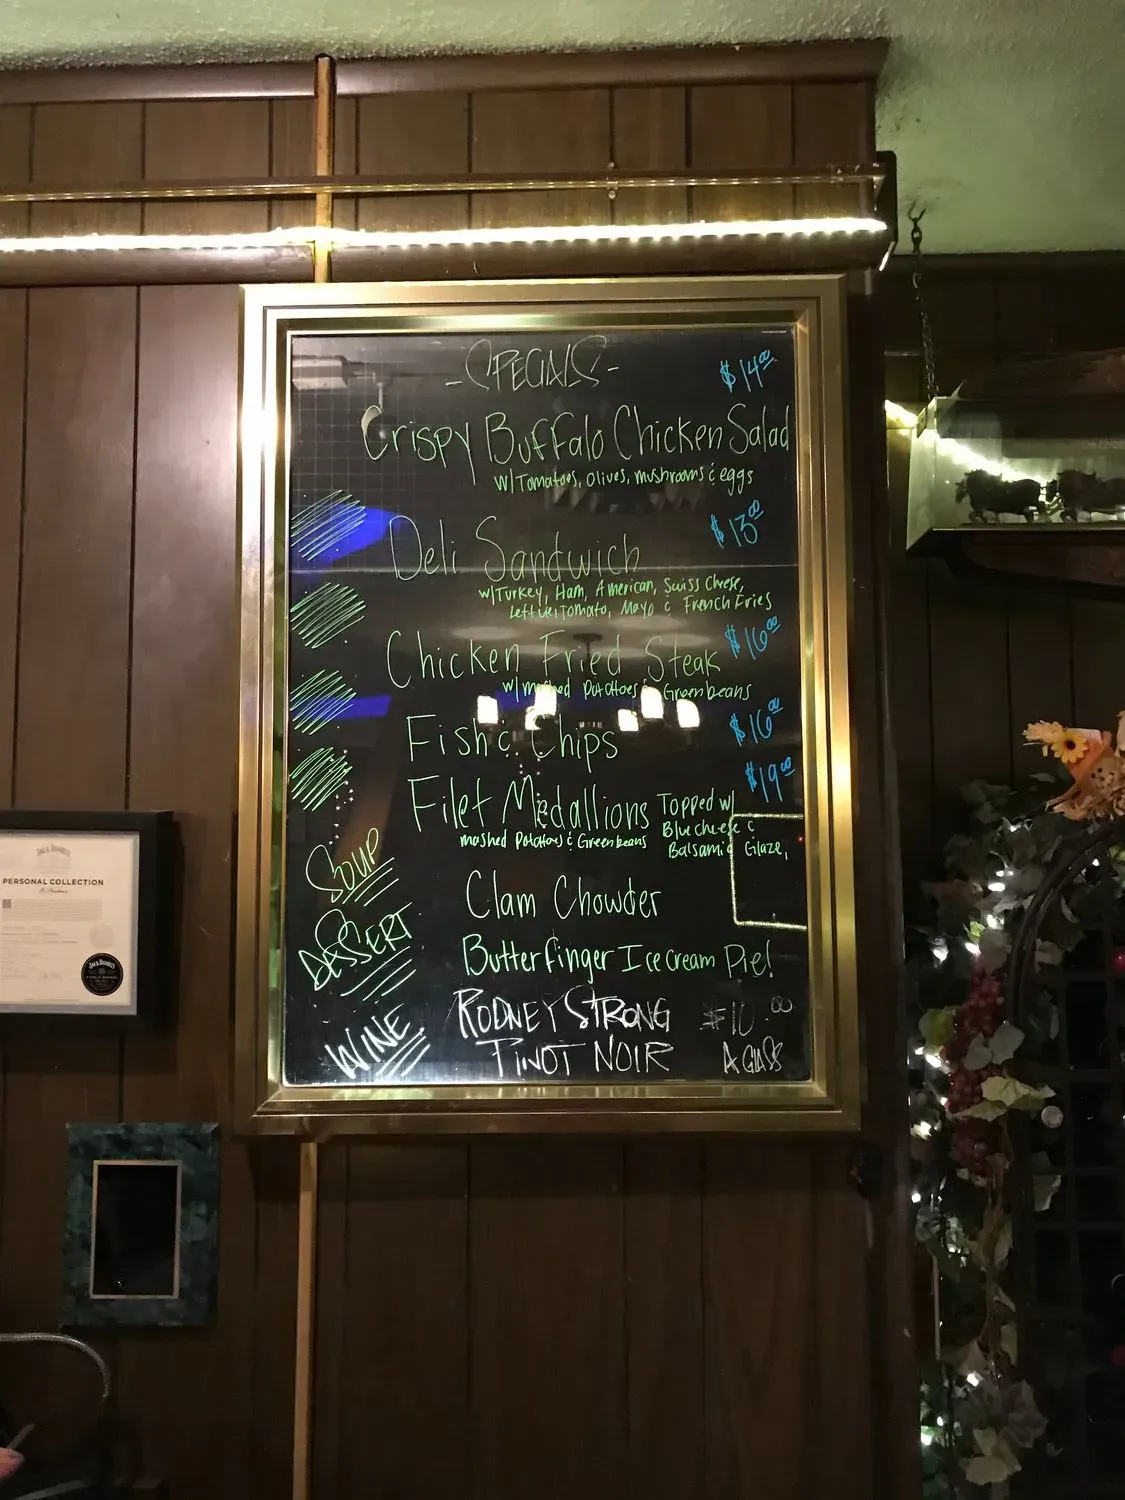 -SPECIALS-
$14.00
Crispy Buffalo Chicken Salad
w/Tomatoes, Olives, mushrooms & eggs
Deli Sandwich $13.00
w/Turkey, Ham, American, Swiss Cheese,
Lettuce, Tomato, Mayo & French Fries
Chicken Fried Steak $16.00
w/mashed Potatoes & Greenbeans
Fish & Chips $16.00
$19.00
Filet Medallions Topped w/
mashed Potatoes & Greenbeans Bluecheese &
Balsamic Glaze,
SOUP Clam Chowder
DESSERT Butterfinger Ice cream Pie!
WINE RODNEY STRONG $10.00
PINOT NOIR A GLASS
JACK DANIEL'S
PERSONAL COLLECTION